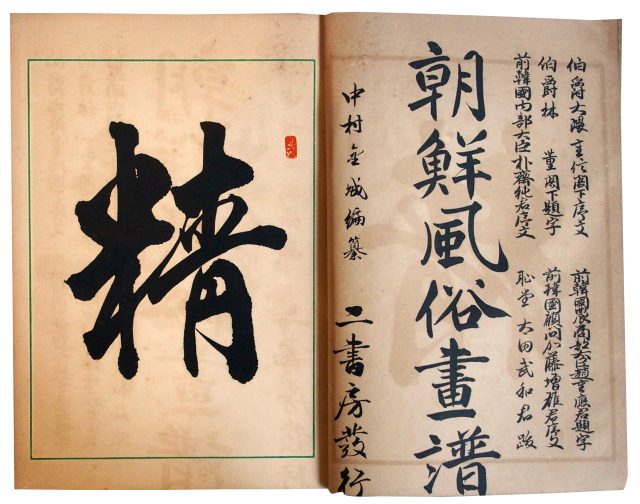 伯爵大隈重信閣下序文 前韓國農商部大臣趙重應君題字
伯爵林 董閣下題字 前韓國顧問加藤增雄君序文
前韓國内部大臣朴齊純君序文 恥堂 太田武和君 跋
朝鮮風俗畫譜
中村金城編纂
二書房發行
精